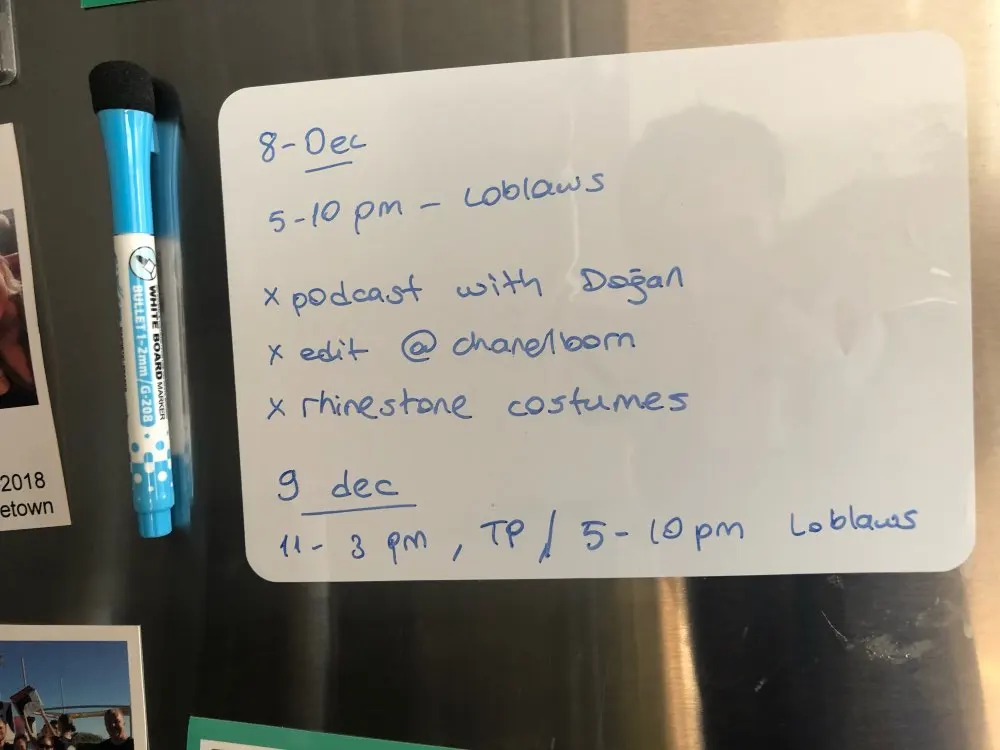 8-Dec
5-10 pm - Loblaws
x podcast with Doğan
x edit @ chanelborn
x rhinestone costumes
9 dec
11- 3 pm, TP / 5-10 pm Loblaws
WHITE BOARD MARKER
BULLET 1-2mm/G-208
2018
etown